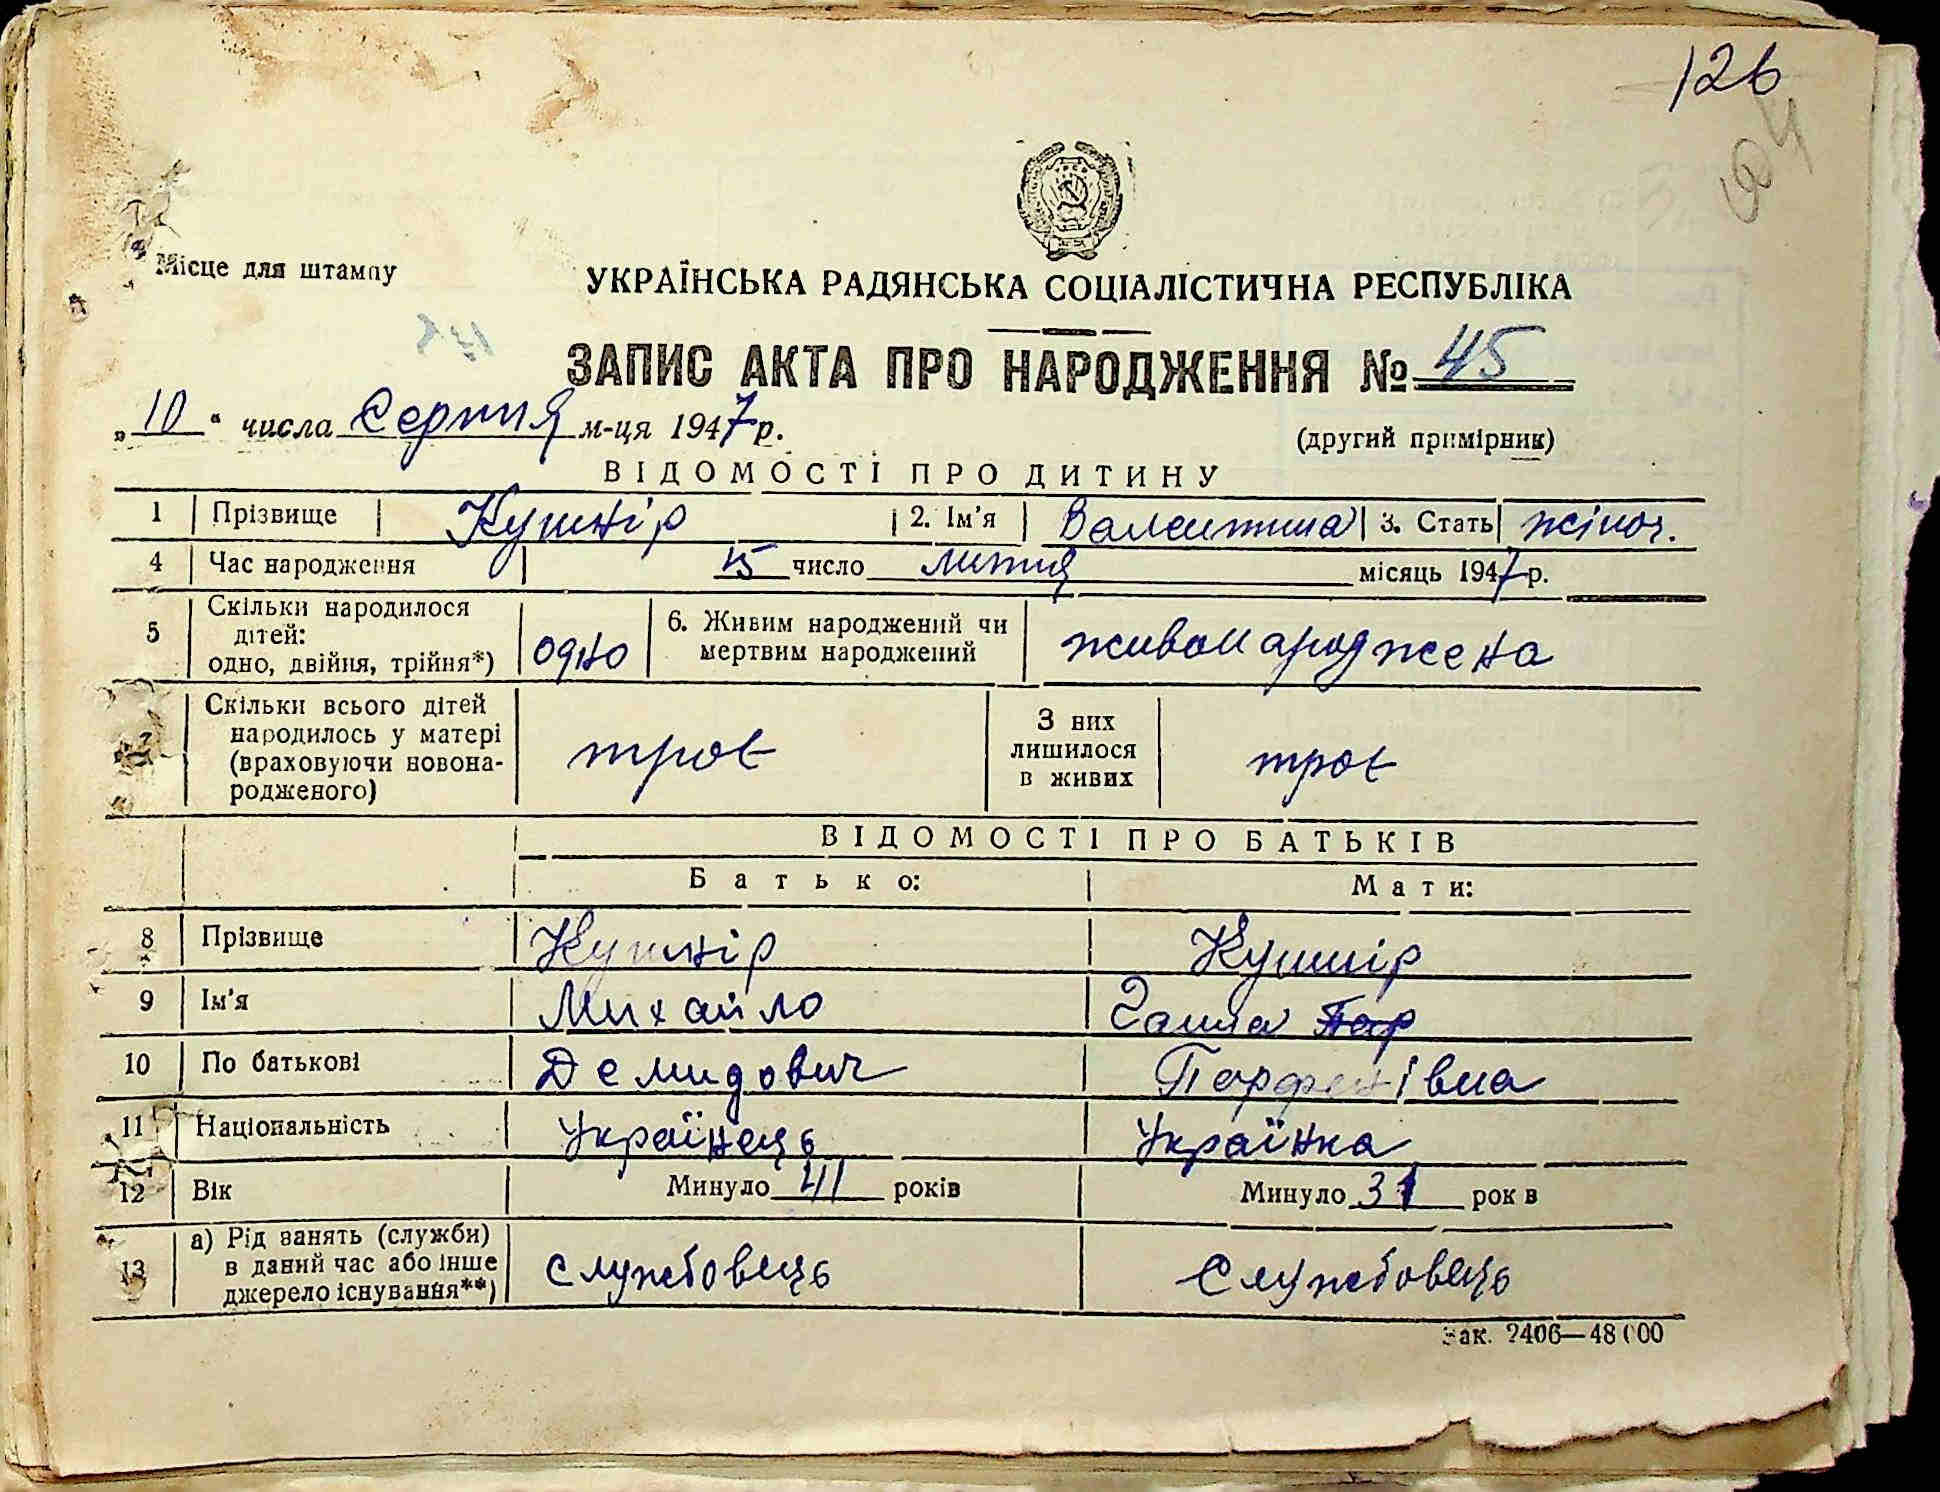 126
Місце для штампу
УКРАЇНСЬКА РАДЯНСЬКА СОЦІАЛІСТИЧНА РЕСПУБЛІКА
ЗАПИС АКТА ПРО НАРОДЖЕННЯ № 45
„10“ числа Серпня м-ця 1947 р.
(другий примірник)
ВІДОМОСТІ ПРО ДИТИНУ
1 Прізвище Кушнір 2. Ім'я Валентина 3. Стать жіноч.
4 Час народження 15 число липня місяць 1947 р.
5 Скільки народилося дітей: одно, двійня, трійня*) одно 6. Живим народжений чи мертвим народжений живонароджена
7 Скільки всього дітей народилось у матері (враховуючи новонародженого) троє З них лишилося в живих троє
ВІДОМОСТІ ПРО БАТЬКІВ
Батько: Мати:
8 Прізвище Кушнір Кушнір
9 Ім'я Михайло Ганна Пар
10 По батькові Демидович Парфенівна
11 Національність Українець Українка
12 Вік Минуло 41 років Минуло 31 рок в
13 а) Рід занять (служби) в даний час або інше джерело існування**) службовець Службовець
Зак. 2406—48000